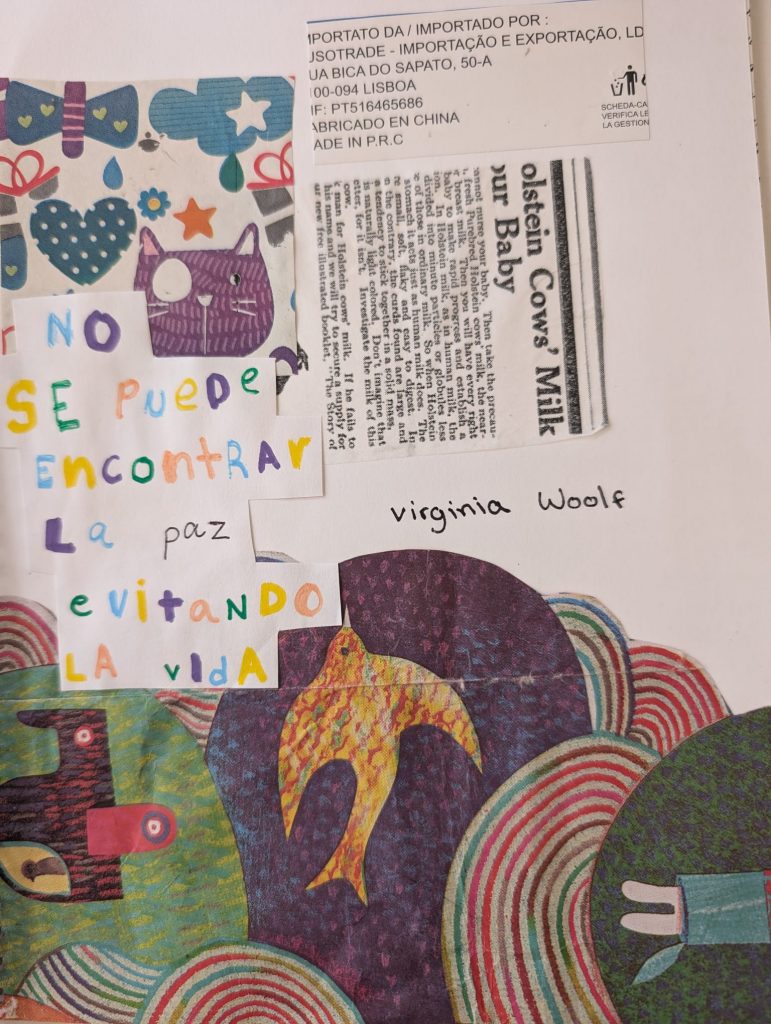 MPORTATO DA / IMPORTADO POR :
USOTRADE - IMPORTAÇÃO E EXPORTAÇÃO, LD
UA BICA DO SAPATO, 50-A
100-094 LISBOA
IF: PT516465686
ABRICADO EN CHINA
ADE IN P.R.C
SCHEDA-CA
VERIFICA LE
LA GESTION
olstein Cows' Milk
our Baby
annot nurse your baby. Then take the precau-
t, fresh Purebred Holstein cows' milk, the near-
r breast milk. Then you will have every right
baby to make rapid progress and establish a
son. In Holstein milk, as in human milk, the
divided into minute particles or globules less
e of those in ordinary milk. So when Holstein
stomach it acts just as human milk does. The
re small, soft, flaky and easy to digest. In
n the contrary, the curds found are large and
a tendency to stick together in a solid mass.
is naturally light colored. Don't imagine that
etter, for it isn't. Investigate the milk of this
cow.
k man for Holstein cows' milk. If he fails to
his name and we will try to secure a supply for
ur new free illustrated booklet, "The Story of
NO
SE PUEDE
ENCONTRAR
La paz
evitANDO
LA vIdA
virginia Woolf